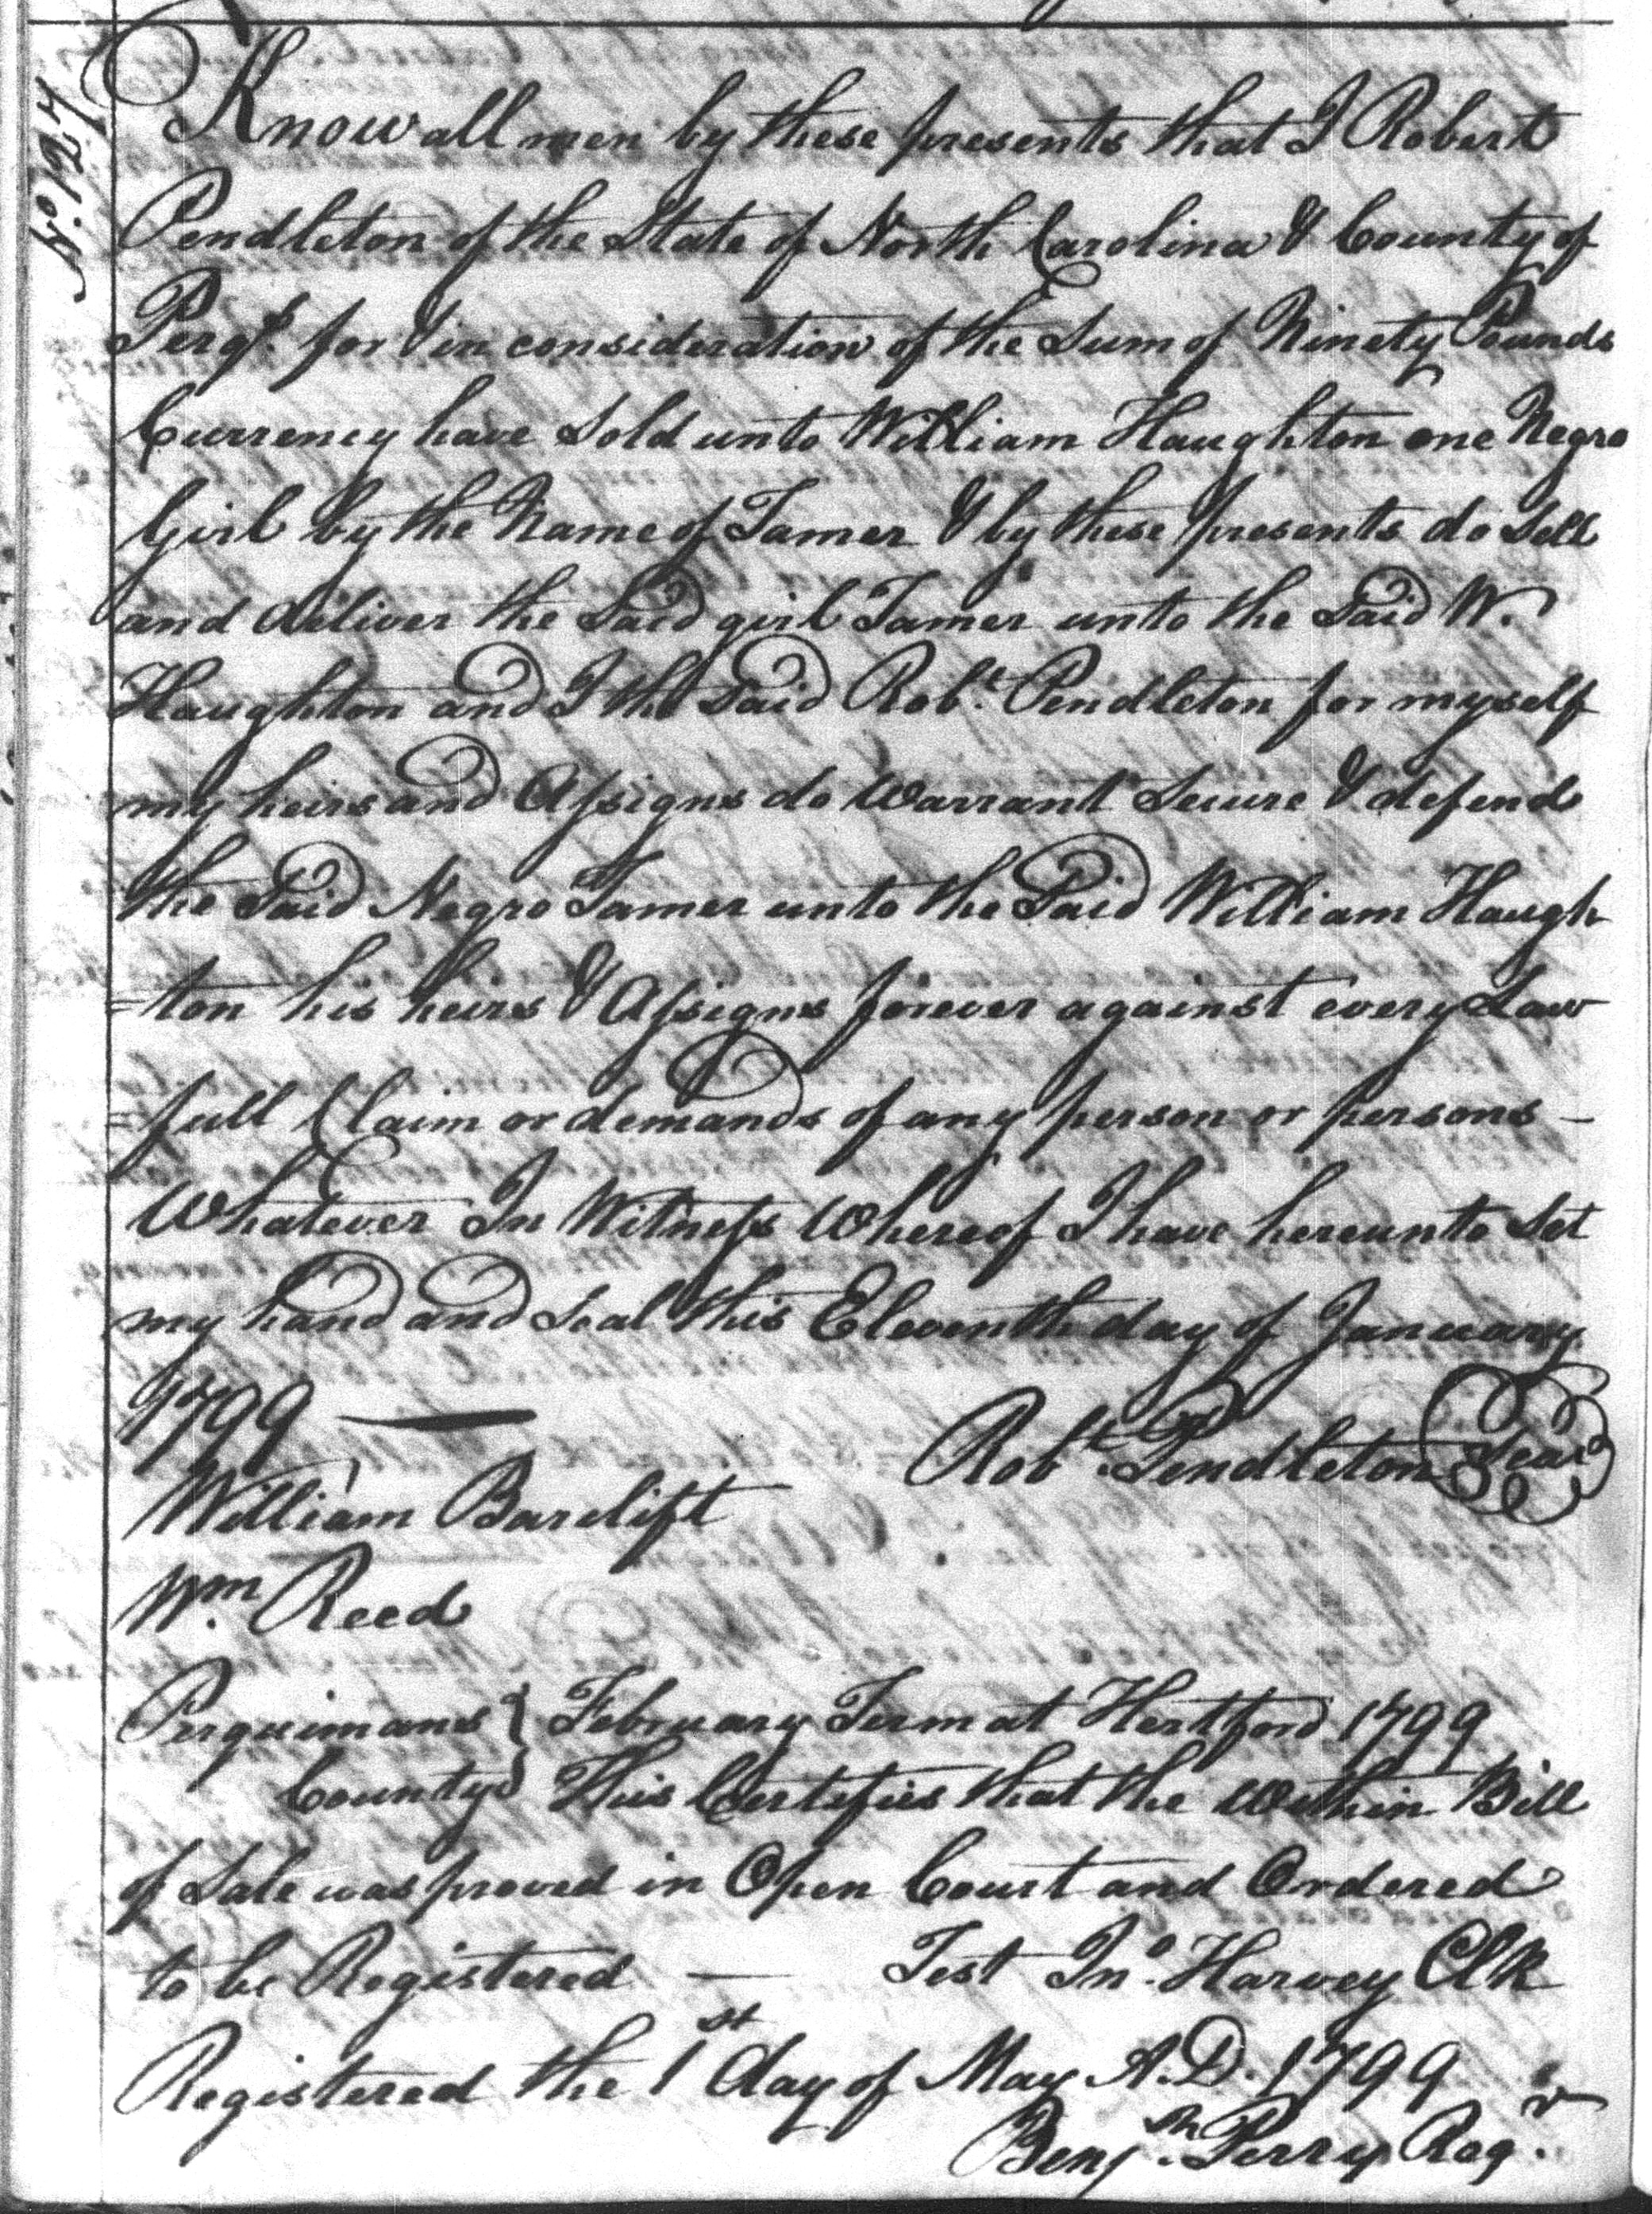 No. 127
Know all men by these presents that I Robert
Pendleton of the State of North Carolina & County of
Perqs. for & in consideration of the Sum of Ninety Pounds
Currency have Sold unto William Haughton one Negro
Girl by the Name of Tamer & by these presents do Sell
and deliver the Said girl Tamer unto the Said W.
Haughton and I the Said Robt. Pendleton for myself
my heirs and Assigns do Warrant Secure & defend
the Said Negro Tamer unto the Said William Haugh
=ton his heirs & Assigns forever against every Law
=full Claim or demands of any person or persons —
Whatever In Witness Whereof I have hereunto Set
my hand and Seal this Eleventh day of January
1799 — Robt. Pendleton Seal
William Barclift
Wm. Reed
Perquimans } February Term at Hertford 1799
County } This Certifies that the Within Bill
of Sale was proved in Open Court and Ordered
to be Registered — Test Jno. Harvey Clk
Registered the 1st day of May A.D. 1799
Benjn. Perry Regr.